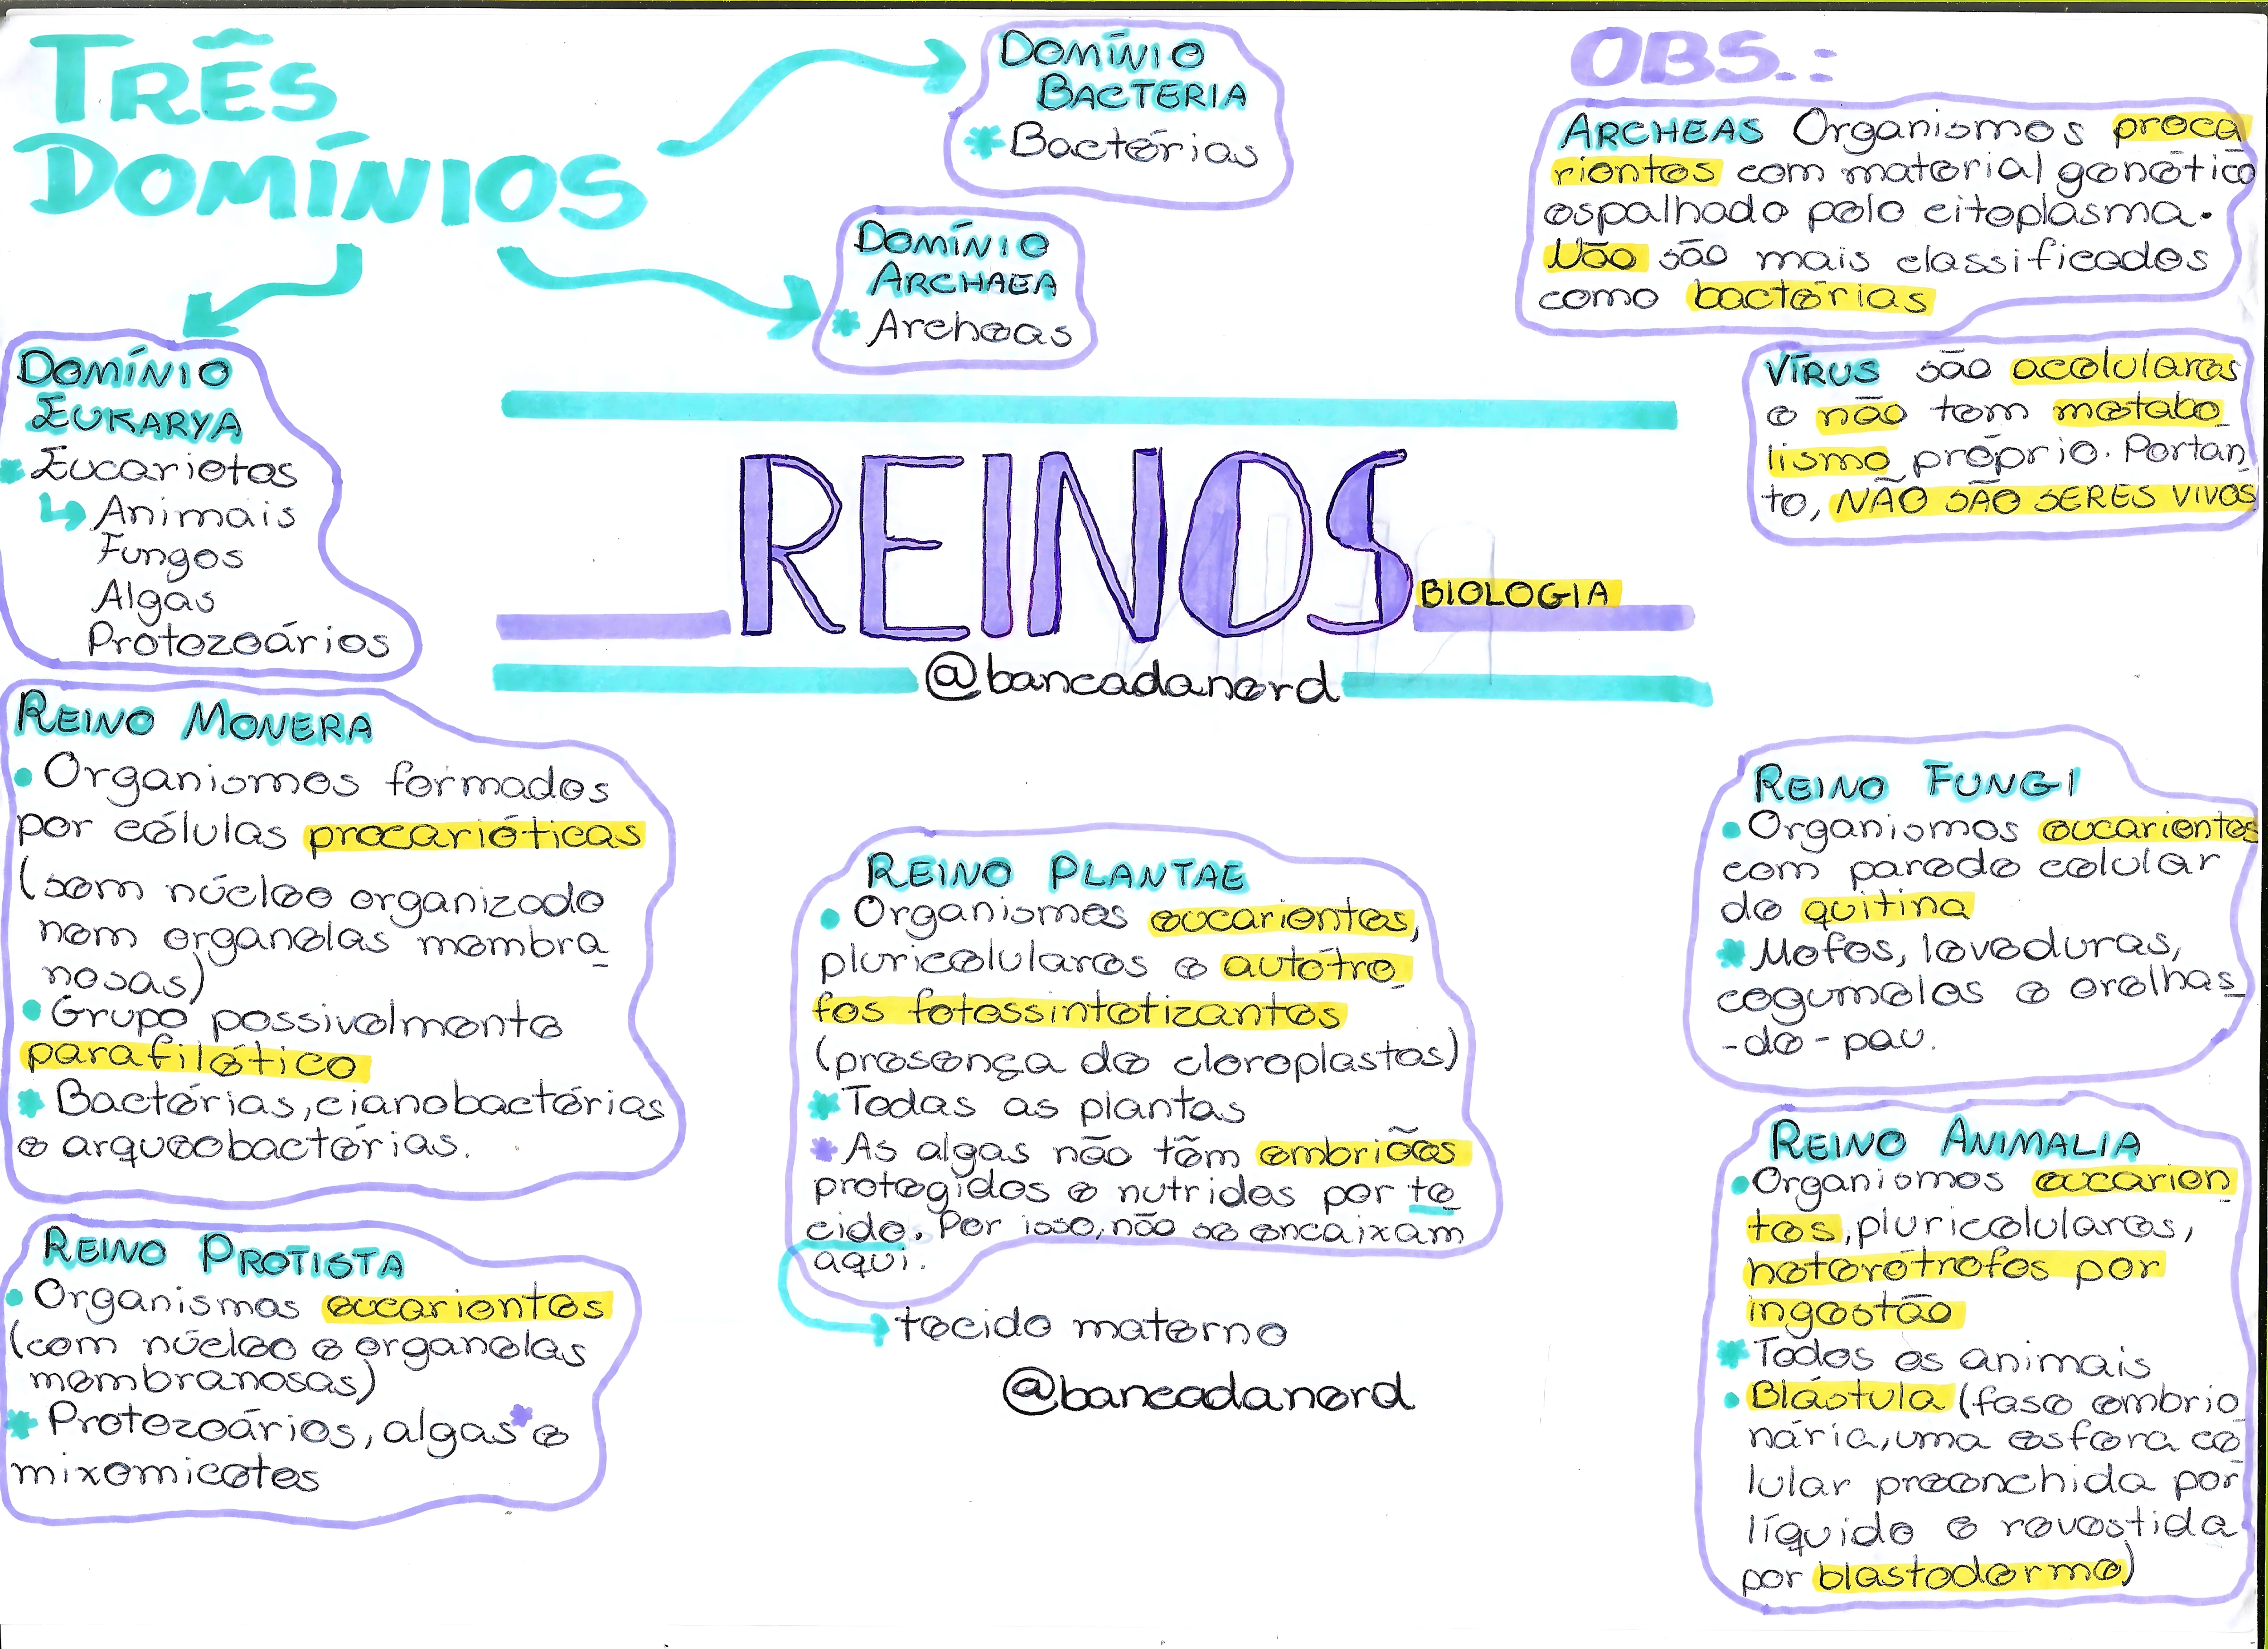 TRÊS
DOMÍNIOS
DOMÍNIO
BACTERIA
* Bactérias
DOMÍNIO
ARCHAEA
* Archeas
DOMÍNIO
EUKARYA
* Eucariotos
↳ Animais
Fungos
Algas
Protozoários
OBS.:
ARCHEAS Organismos proca
riontes com material genético
espalhado pelo citoplasma.
Não são mais classificados
como bactérias
VÍRUS são acelulares
e não tem metabo
lismo próprio. Portan
to, NÃO SÃO SERES VIVOS
REINOS
BIOLOGIA
@bancadanerd
REINO MONERA
• Organismos formados
por células procarióticas
(sem núcleo organizado
nem organelas membra
nosas)
• Grupo possivelmente
parafilético
* Bactérias, cianobactérias
e arqueobactérias.
REINO PROTISTA
• Organismos eucariontes
(com núcleo e organelas
membranosas)
* Protozoários, algas* e
mixomicetes
REINO PLANTAE
• Organismos eucariontes,
pluricelulares e autótro
fos fotossintetizantes
(presença de cloroplastos)
* Todas as plantas
* As algas não têm embriões
protegidos e nutridos por te
cido. Por isso, não se encaixam
aqui.
tecido materno
@bancadanerd
REINO FUNGI
• Organismos eucariontes
com parede celular
de quitina
* Mofos, leveduras,
cogumelos e orelhas
-de-pau.
REINO ANIMALIA
• Organismos eucarion
tes, pluricelulares,
heterótrofos por
ingestão
* Todos os animais
• Blástula (fase embrio
nária, uma esfera ce
lular preenchida por
líquido e revestida
por blastoderme)